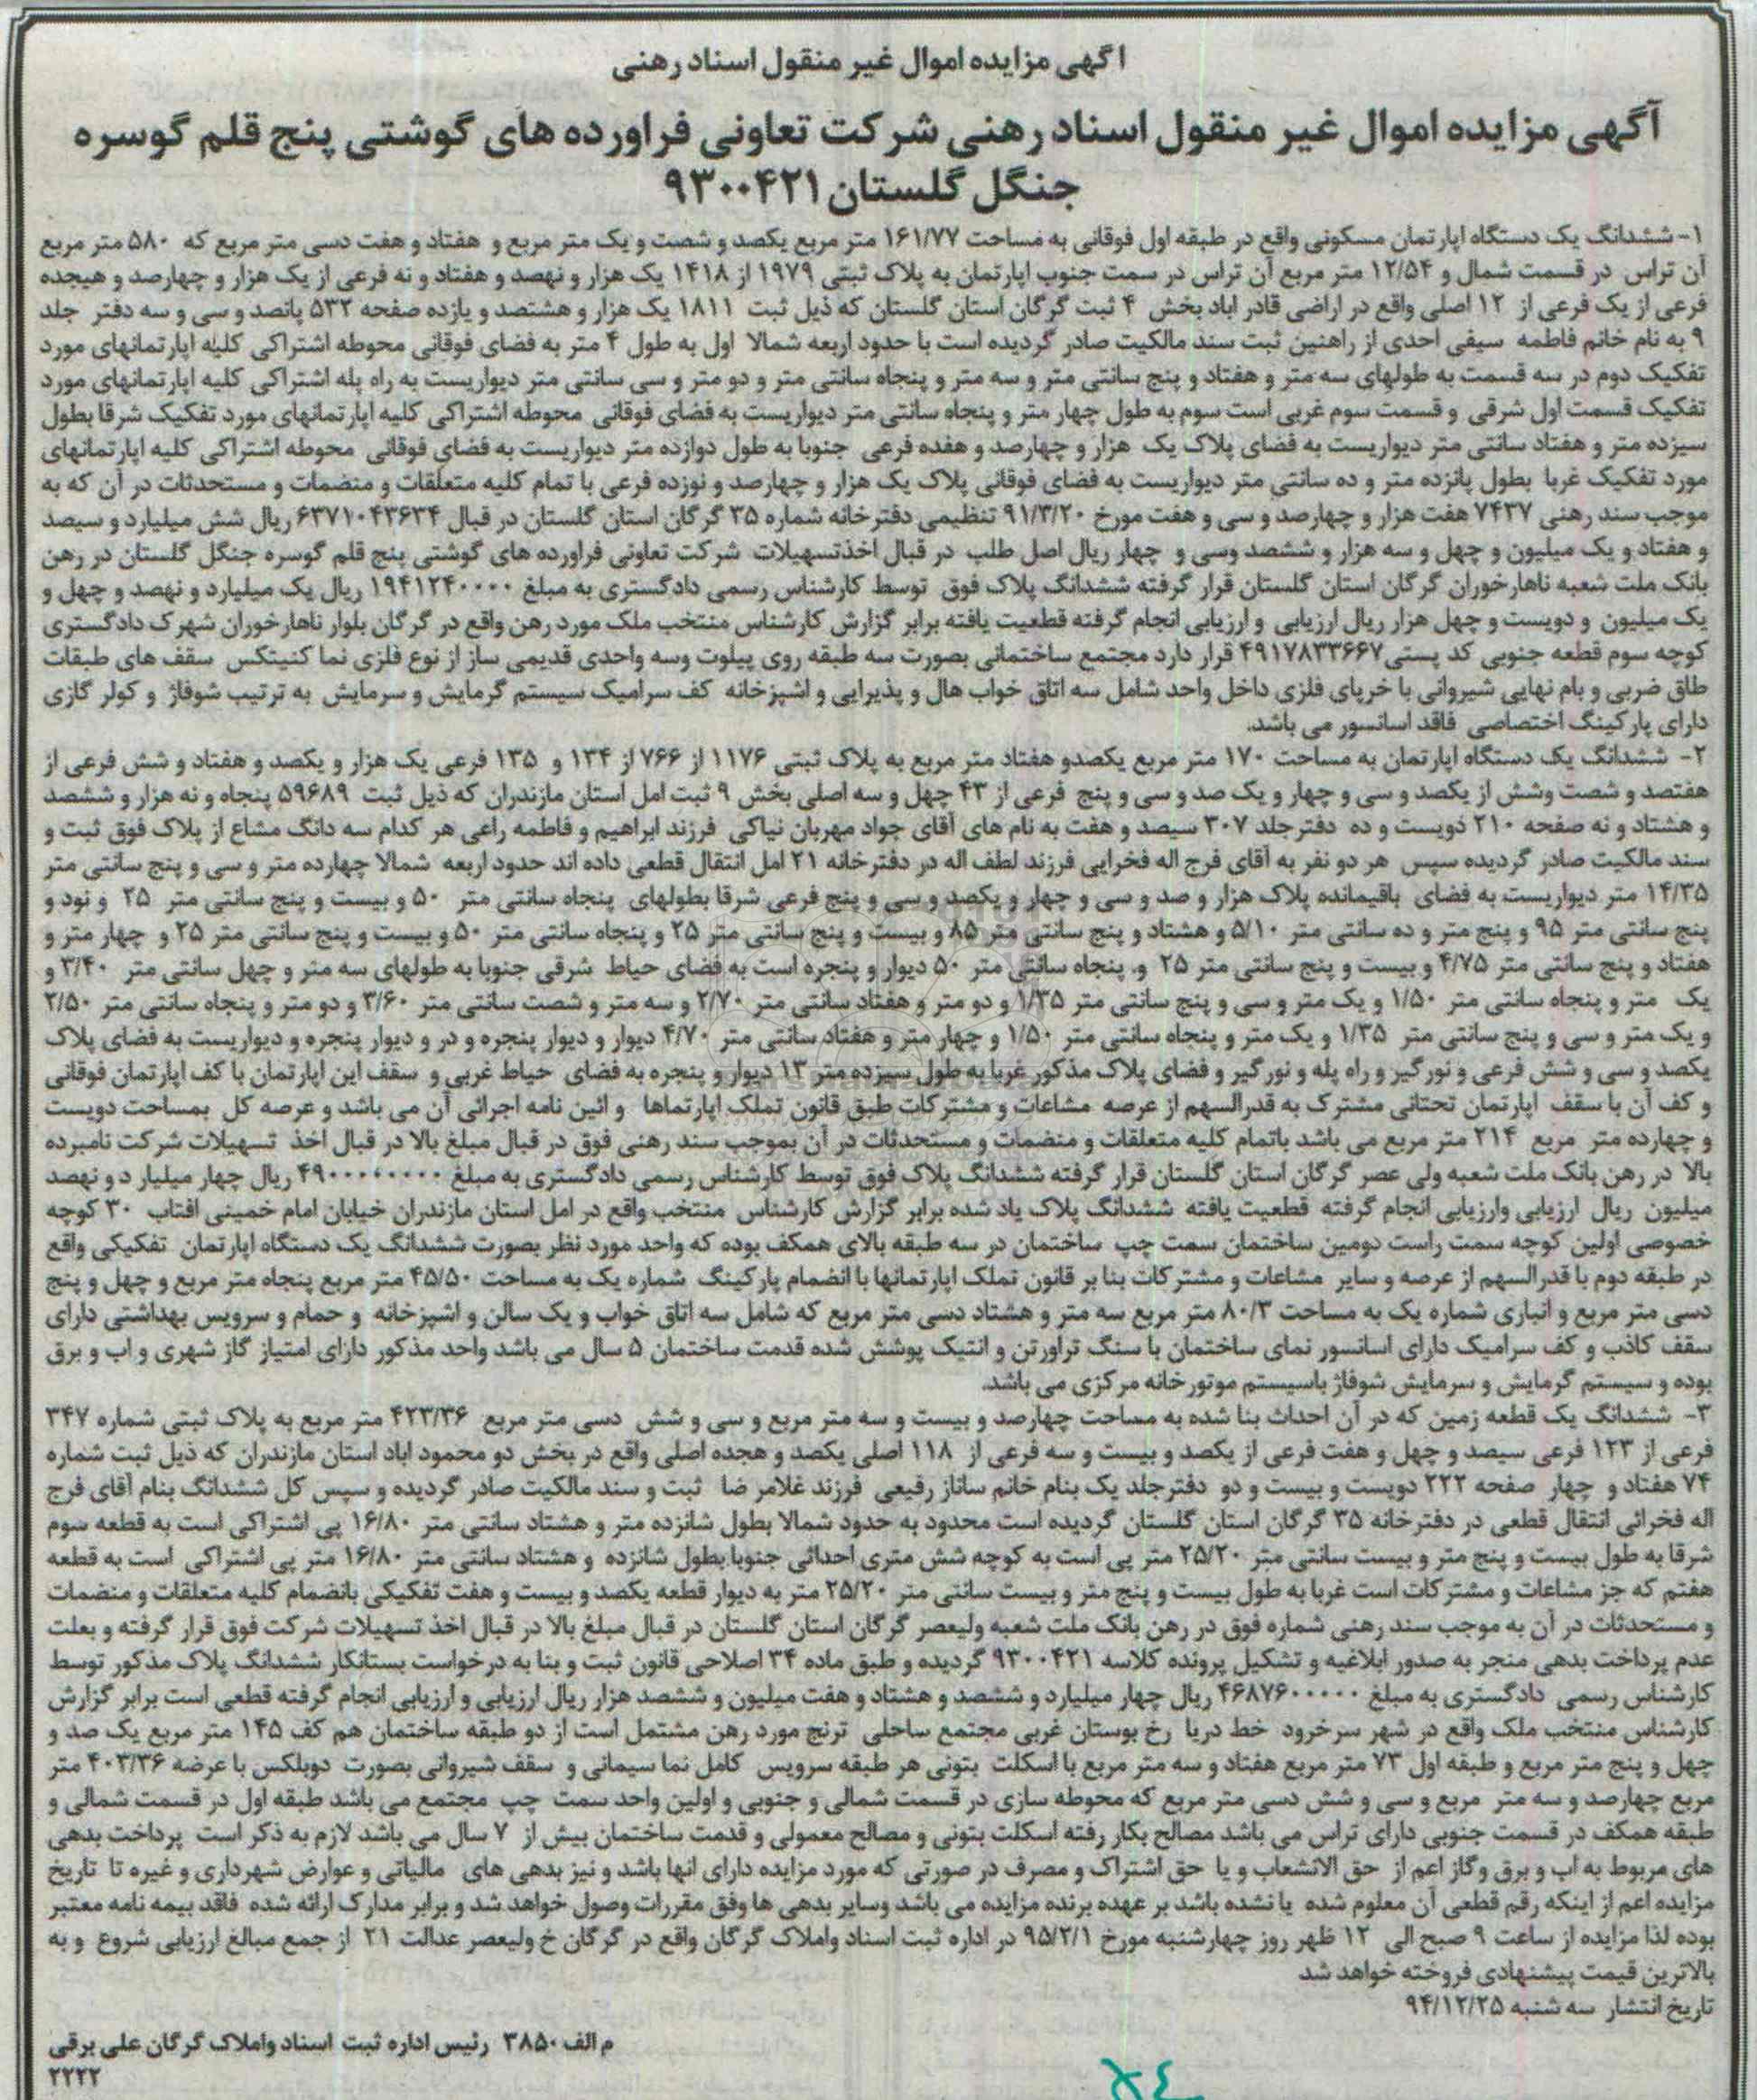 آگهی مزایده اموال غیر منقول اسناد رهنی
آگهی مزایده اموال غیر منقول اسناد رهنی شرکت تعاونی فراورده های گوشتی پنج قلم گوسره
جنگل گلستان ۹۳۰۰۴۲۱
۱- ششدانگ یک دستگاه اپارتمان مسکونی واقع در طبقه اول فوقانی به مساحت ۱۶۱/۷۷ متر مربع یکصد و شصت و یک متر مربع و هفتاد و هفت دسی متر مربع که ۵۸۰ متر مربع
آن تراس در قسمت شمال و ۱۲/۵۴ متر مربع آن تراس در سمت جنوب اپارتمان به پلاک ثبتی ۱۹۷۹ از ۱۴۱۸ یک هزار و نهصد و هفتاد و نه فرعی از یک هزار و چهارصد و هیجده
فرعی از یک فرعی از ۱۲ اصلی واقع در اراضی قادر اباد بخش ۴ ثبت گرگان استان گلستان که ذیل ثبت ۱۸۱۱ یک هزار و هشتصد و یازده صفحه ۵۳۲ پانصد و سی و سه دفتر جلد
۹ به نام خانم فاطمه سیفی احدی از راهنین ثبت سند مالکیت صادر گردیده است با حدود اربعه شمالا اول به طول ۴ متر به فضای فوقانی محوطه اشتراکی کلیه اپارتمانهای مورد
تفکیک دوم در سه قسمت به طولهای سه متر و هفتاد و پنج سانتی متر و سه متر و پنجاه سانتی متر و دو متر و سی سانتی متر دیواریست به راه پله اشتراکی کلیه اپارتمانهای مورد
تفکیک قسمت اول شرقی و قسمت سوم غربی است سوم به طول چهار متر و پنجاه سانتی متر دیواریست به فضای فوقانی محوطه اشتراکی کلیه اپارتمانهای مورد تفکیک شرقا بطول
سیزده متر و هفتاد سانتی متر دیواریست به فضای پلاک یک هزار و چهارصد و هفده فرعی جنوبا به طول دوازده متر دیواریست به فضای فوقانی محوطه اشتراکی کلیه اپارتمانهای
مورد تفکیک غربا بطول پانزده متر و ده سانتی متر دیواریست به فضای فوقانی پلاک یک هزار و چهارصد و نوزده فرعی با تمام کلیه متعلقات و منضمات و مستحدثات در آن که به
موجب سند رهنی ۷۴۳۷ هفت هزار و چهارصد و سی و هفت مورخ ۹۱/۳/۲۰ تنظیمی دفترخانه شماره ۳۵ گرگان استان گلستان در قبال ۶۳۷۱۰۴۳۶۳۴ ریال شش میلیارد و سیصد
و هفتاد و یک میلیون و چهل و سه هزار و ششصد وسی و چهار ریال اصل طلب در قبال اخذتسهیلات شرکت تعاونی فراورده های گوشتی پنج قلم گوسره جنگل گلستان در رهن
بانک ملت شعبه ناهارخوران گرگان استان گلستان قرار گرفته ششدانگ پلاک فوق توسط کارشناس رسمی دادگستری به مبلغ ۱۹۴۱۲۴۰۰۰۰ ریال یک میلیارد و نهصد و چهل و
یک میلیون و دویست و چهل هزار ریال ارزیابی و ارزیابی انجام گرفته قطعیت یافته برابر گزارش کارشناس منتخب ملک مورد رهن واقع در گرگان بلوار ناهارخوران شهرک دادگستری
کوچه سوم قطعه جنوبی کد پستی۴۹۱۷۸۳۳۶۶۷ قرار دارد مجتمع ساختمانی بصورت سه طبقه روی پیلوت وسه واحدی قدیمی ساز از نوع فلزی نما کنیتکس سقف های طبقات
طاق ضربی و بام نهایی شیروانی با خرپای فلزی داخل واحد شامل سه اتاق خواب هال و پذیرایی و اشپزخانه کف سرامیک سیستم گرمایش و سرمایش به ترتیب شوفاژ و کولر گازی
دارای پارکینگ اختصاصی فاقد اسانسور می باشد.
۲- ششدانگ یک دستگاه اپارتمان به مساحت ۱۷۰ متر مربع یکصدو هفتاد متر مربع به پلاک ثبتی ۱۱۷۶ از ۷۶۶ از ۱۳۴ و ۱۳۵ فرعی یک هزار و یکصد و هفتاد و شش فرعی از
هفتصد و شصت وشش از یکصد و سی و چهار و یک صد و سی و پنج فرعی از ۴۳ چهل و سه اصلی بخش ۹ ثبت امل استان مازندران که ذیل ثبت ۵۹۶۸۹ پنجاه و نه هزار و ششصد
و هشتاد و نه صفحه ۲۱۰ دویست و ده دفترجلد ۳۰۷ سیصد و هفت به نام های آقای جواد مهربان نیاکی فرزند ابراهیم و فاطمه راعی هر کدام سه دانگ مشاع از پلاک فوق ثبت و
سند مالکیت صادر گردیده سپس هر دو نفر به آقای فرج اله فخرایی فرزند لطف اله در دفترخانه ۲۱ امل انتقال قطعی داده اند حدود اربعه شمالا چهارده متر و سی و پنج سانتی متر
۱۴/۳۵ متر دیواریست به فضای باقیمانده پلاک هزار و صد و سی و چهار و یکصد و سی و پنج فرعی شرقا بطولهای پنجاه سانتی متر ۵۰ و بیست و پنج سانتی متر ۲۵ و نود و
پنج سانتی متر ۹۵ و پنج متر و ده سانتی متر ۵/۱۰ و هشتاد و پنج سانتی متر ۸۵ و بیست و پنج سانتی متر ۲۵ و پنجاه سانتی متر ۵۰ و بیست و پنج سانتی متر ۲۵ و چهار متر و
هفتاد و پنج سانتی متر ۴/۷۵ و بیست و پنج سانتی متر ۲۵ و پنجاه سانتی متر ۵۰ دیوار و پنجره است به فضای حیاط شرقی جنوبا به طولهای سه متر و چهل سانتی متر ۳/۴۰ و
یک متر و پنجاه سانتی متر ۱/۵۰ و یک متر و سی و پنج سانتی متر ۱/۳۵ و دو متر و هفتاد سانتی متر ۲/۷۰ و سه متر و شصت سانتی متر ۳/۶۰ و دو متر و پنجاه سانتی متر ۲/۵۰
و یک متر و سی و پنج سانتی متر ۱/۳۵ و یک متر و پنجاه سانتی متر ۱/۵۰ و چهار متر و هفتاد سانتی متر ۴/۷۰ دیوار و دیوار پنجره و در و دیوار پنجره و دیواریست به فضای پلاک
یکصد و سی و شش فرعی و نورگیر و راه پله و نورگیر و فضای پلاک مذکور غربا به طول سیزده متر ۱۳ دیوار و پنجره به فضای حیاط غربی و سقف این اپارتمان با کف اپارتمان فوقانی
و کف آن با سقف اپارتمان تحتانی مشترک به قدرالسهم از عرصه مشاعات و مشترکات طبق قانون تملک اپارتماها و ائین نامه اجرائی آن می باشد و عرصه کل بمساحت دویست
و چهارده متر مربع ۲۱۴ متر مربع می باشد باتمام کلیه متعلقات و منضمات و مستحدثات در آن بموجب سند رهنی فوق در قبال مبلغ بالا در قبال اخذ تسهیلات شرکت نامبرده
بالا در رهن بانک ملت شعبه ولی عصر گرگان استان گلستان قرار گرفته ششدانگ پلاک فوق توسط کارشناس رسمی دادگستری به مبلغ ۴۹۰۰۰۰۰۰۰۰ ریال چهار میلیار د و نهصد
میلیون ریال ارزیابی وارزیابی انجام گرفته قطعیت یافته ششدانگ پلاک یاد شده برابر گزارش کارشناس منتخب واقع در امل استان مازندران خیابان امام خمینی افتاب ۳۰ کوچه
خصوصی اولین کوچه سمت راست دومین ساختمان سمت چپ ساختمان در سه طبقه بالای همکف بوده که واحد مورد نظر بصورت ششدانگ یک دستگاه اپارتمان تفکیکی واقع
در طبقه دوم با قدرالسهم از عرصه و سایر مشاعات و مشترکات بنا بر قانون تملک اپارتمانها با انضمام پارکینگ شماره یک به مساحت ۴۵/۵۰ متر مربع پنجاه متر مربع و چهل و پنج
دسی متر مربع و انباری شماره یک به مساحت ۸۰/۳ متر مربع سه متر و هشتاد دسی متر مربع که شامل سه اتاق خواب و یک سالن و اشپزخانه و حمام و سرویس بهداشتی دارای
سقف کاذب و کف سرامیک دارای اسانسور نمای ساختمان با سنگ تراورتن و انتیک پوشش شده قدمت ساختمان ۵ سال می باشد واحد مذکور دارای امتیاز گاز شهری و اب و برق
بوده و سیستم گرمایش و سرمایش شوفاژ باسیستم موتورخانه مرکزی می باشد.
۳- ششدانگ یک قطعه زمین که در آن احداث بنا شده به مساحت چهارصد و بیست و سه متر مربع و سی و شش دسی متر مربع ۴۲۳/۳۶ متر مربع به پلاک ثبتی شماره ۳۴۷
فرعی از ۱۲۳ فرعی سیصد و چهل و هفت فرعی از یکصد و بیست و سه فرعی از ۱۱۸ اصلی یکصد و هجده اصلی واقع در بخش دو محمود اباد استان مازندران که ذیل ثبت شماره
۷۴ هفتاد و چهار صفحه ۲۲۲ دویست و بیست و دو دفترجلد یک بنام خانم ساناز رفیعی فرزند غلامر ضا ثبت و سند مالکیت صادر گردیده و سپس کل ششدانگ بنام آقای فرج
اله فخرائی انتقال قطعی در دفترخانه ۳۵ گرگان استان گلستان گردیده است محدود به حدود شمالا بطول شانزده متر و هشتاد سانتی متر ۱۶/۸۰ پی اشتراکی است به قطعه سوم
شرقا به طول بیست و پنج متر و بیست سانتی متر ۲۵/۲۰ متر پی است به کوچه شش متری احداثی جنوبا بطول شانزده و هشتاد سانتی متر ۱۶/۸۰ متر پی اشتراکی است به قطعه
هفتم که جز مشاعات و مشترکات است غربا به طول بیست و پنج متر و بیست سانتی متر ۲۵/۲۰ متر به دیوار قطعه یکصد و بیست و هفت تفکیکی بانضمام کلیه متعلقات و منضمات
و مستحدثات در آن به موجب سند رهنی شماره فوق در رهن بانک ملت شعبه ولیعصر گرگان استان گلستان در قبال مبلغ بالا در قبال اخذ تسهیلات شرکت فوق قرار گرفته و بعلت
عدم پرداخت بدهی منجر به صدور ابلاغیه و تشکیل پرونده کلاسه ۹۳۰۰۴۲۱ گردیده و طبق ماده ۳۴ اصلاحی قانون ثبت و بنا به درخواست بستانکار ششدانگ پلاک مذکور توسط
کارشناس رسمی دادگستری به مبلغ ۴۶۸۷۶۰۰۰۰۰ ریال چهار میلیارد و ششصد و هشتاد و هفت میلیون و ششصد هزار ریال ارزیابی و ارزیابی انجام گرفته قطعی است برابر گزارش
کارشناس منتخب ملک واقع در شهر سرخرود خط دریا رخ بوستان غربی مجتمع ساحلی ترنج مورد رهن مشتمل است از دو طبقه ساختمان هم کف ۱۴۵ متر مربع یک صد و
چهل و پنج متر مربع و طبقه اول ۷۳ متر مربع هفتاد و سه متر مربع با اسکلت بتونی هر طبقه سرویس کامل نما سیمانی و سقف شیروانی بصورت دوبلکس با عرضه ۴۰۳/۳۶ متر
مربع چهارصد و سه متر مربع و سی و شش دسی متر مربع که محوطه سازی در قسمت شمالی و جنوبی و اولین واحد سمت چپ مجتمع می باشد طبقه اول در قسمت شمالی و
طبقه همکف در قسمت جنوبی دارای تراس می باشد مصالح بکار رفته اسکلت بتونی و مصالح معمولی و قدمت ساختمان بیش از ۷ سال می باشد لازم به ذکر است پرداخت بدهی
های مربوط به اب و برق وگاز اعم از حق الانشعاب و یا حق اشتراک و مصرف در صورتی که مورد مزایده دارای انها باشد و نیز بدهی های مالیاتی و عوارض شهرداری و غیره تا تاریخ
مزایده اعم از اینکه رقم قطعی آن معلوم شده یا نشده باشد بر عهده برنده مزایده می باشد وسایر بدهی ها وفق مقررات وصول خواهد شد و برابر مدارک ارائه شده فاقد بیمه نامه معتبر
بوده لذا مزایده از ساعت ۹ صبح الی ۱۲ ظهر روز چهارشنبه مورخ ۹۵/۲/۱ در اداره ثبت اسناد واملاک گرگان واقع در گرگان خ ولیعصر عدالت ۲۱ از جمع مبالغ ارزیابی شروع و به
بالاترین قیمت پیشنهادی فروخته خواهد شد
تاریخ انتشار سه شنبه ۹۴/۱۲/۲۵
م الف ۳۸۵۰ رئیس اداره ثبت اسناد واملاک گرگان علی برقی
۲۲۲۲